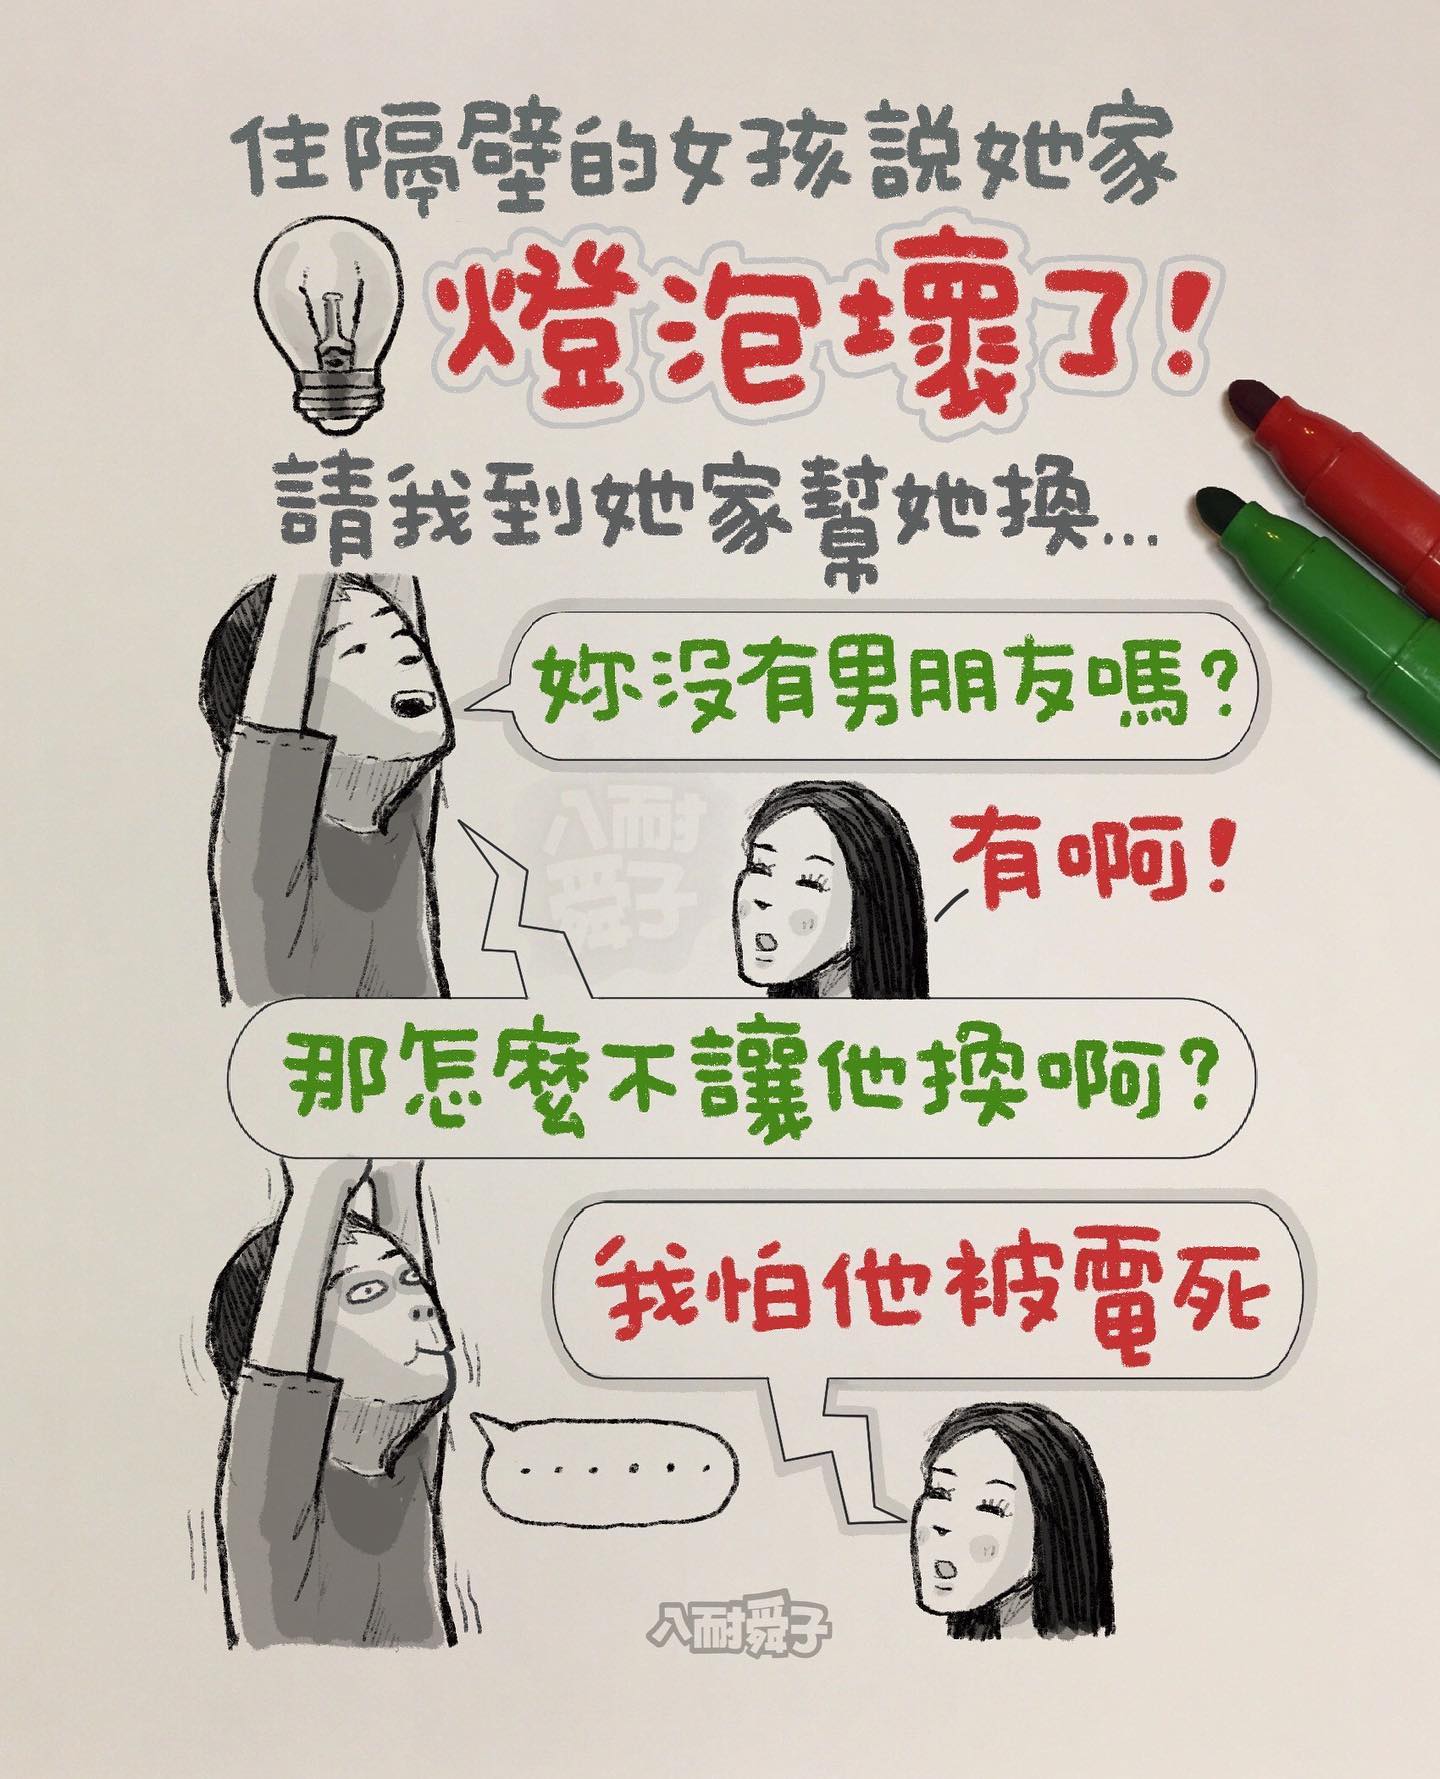 住隔壁的女孩説她家
燈泡壞了!
請我到她家幫她換...
妳沒有男朋友嗎?
八耐
舜子
有啊!
那怎麼不讓他換啊?
我怕他被電死
......
八耐舜子